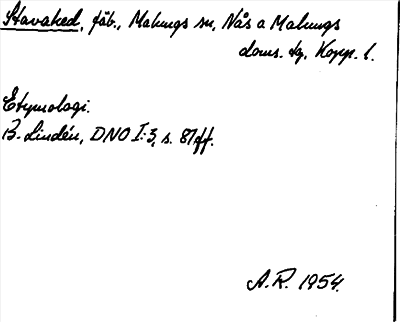 Stavaked, fäb., Malungs sn, Nås o Malungs
doms. tg, Kopp. l.
Etymologi.
B. Lindén, DNO I:3, s. 87 ff.
A.R. 1954.